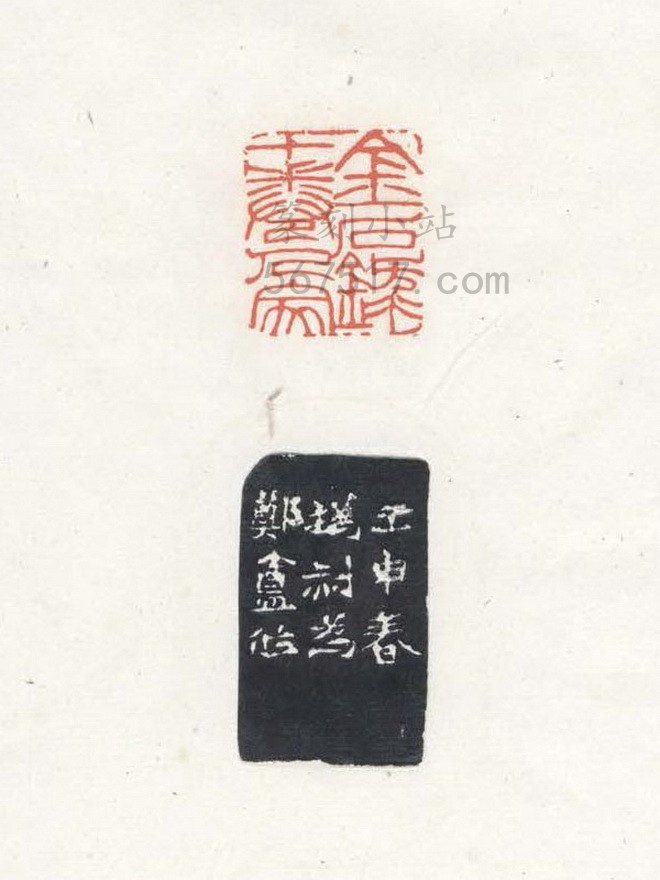 金石錄
十卷人家
篆刻小站
壬申春
撝叔為
鄭盦作